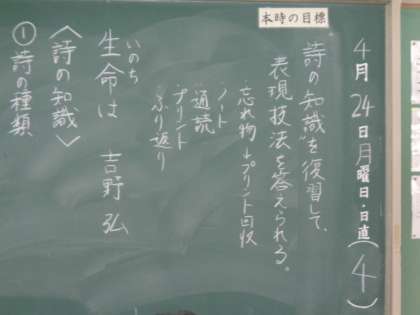 本時の目標
4月24日月曜日・日直(4)
詩の知識を復習して、
表現技法を答えられる。
忘れ物↓プリント回収
ノート
通読
プリント
ふり返り
いのち
生命は 吉野弘
〈詩の知識〉
①詩の種類